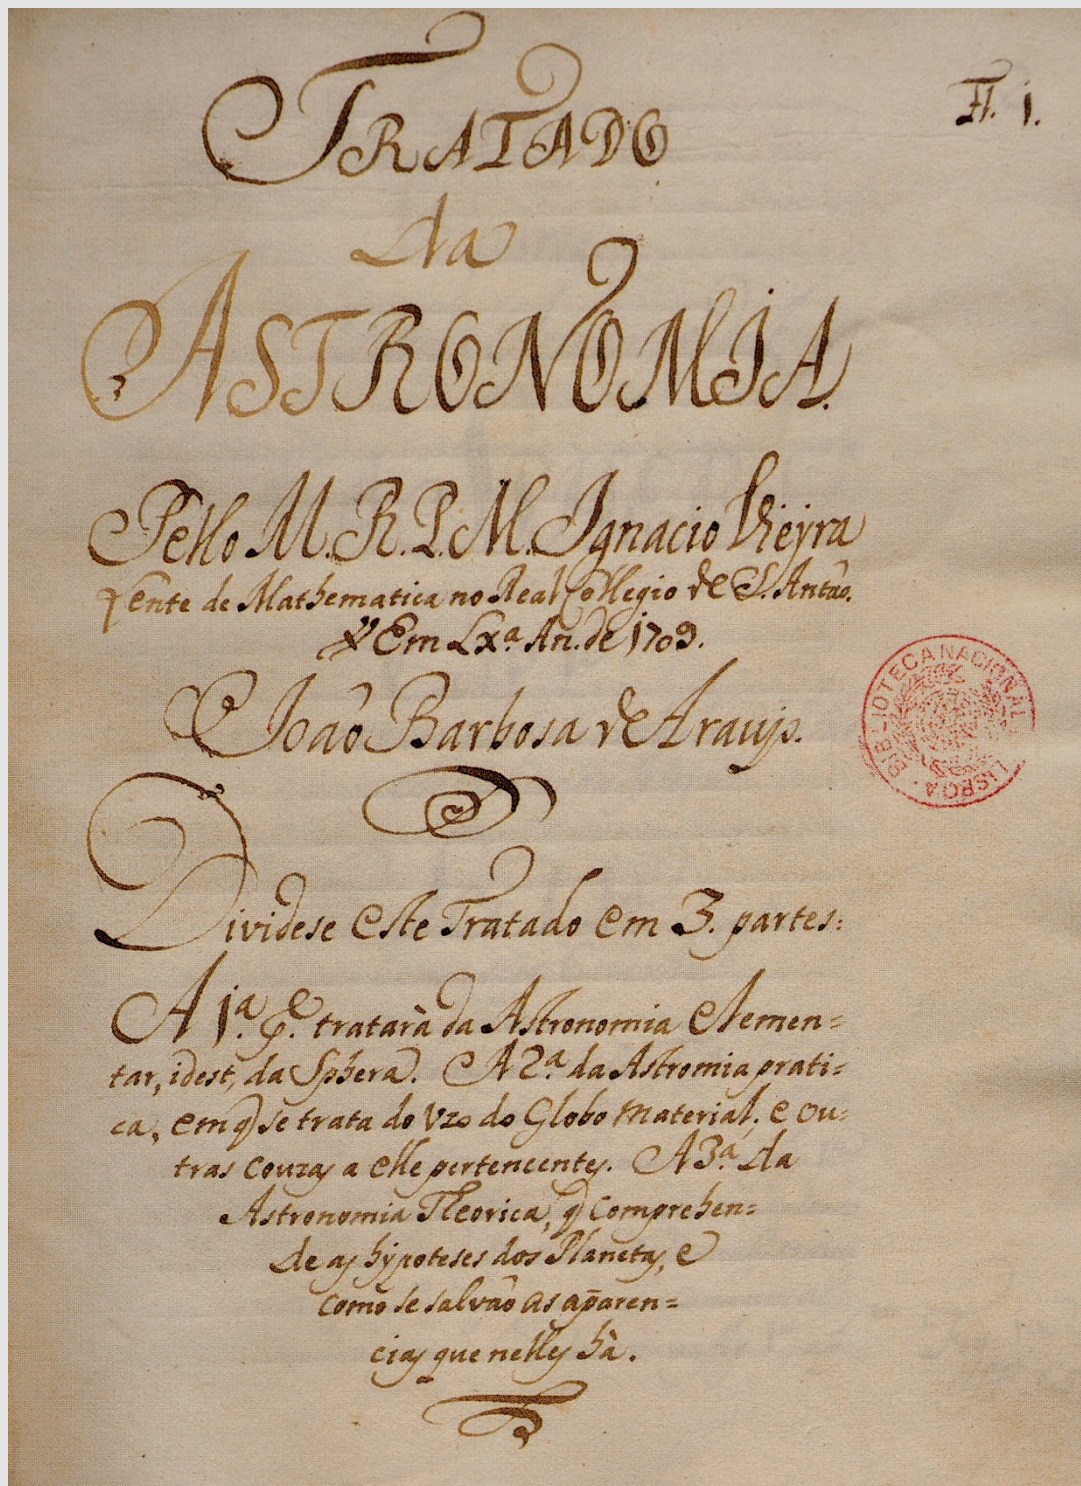 Fl. 1.
TRATADO
da
ASTRONOMIA.
Pello M. R. P. M. Ignacio Vieyra
Lente de Mathematica no Real Collegio de S. Antão.
Em Lxª. An. de 1709.
João Barbosa de Araujo.
Dividese este Tratado em 3. partes:
A 1ª. pe. tratarà da Astronomia elemen=
tar, idest, da Sphera. A 2ª. da Astromia prati=
ca, em q̃ se trata do Vzo do Globo material; e ou=
tras couzas a elle pertencentes. A 3ª. da
Astronomia Theorica, q̃ comprehen=
de as hypoteses dos Planetas, e
como se salvão as aparen=
cias que nelles hà.
BIBLIOTECA NACIONAL LISBOA